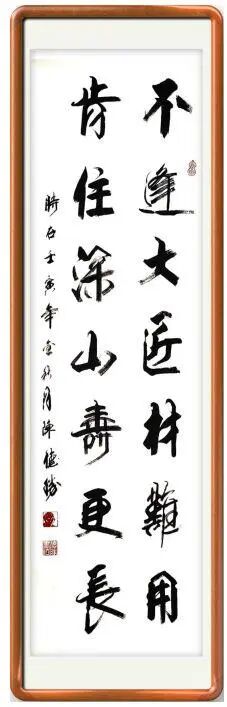 不逢大匠材難用
肯住深山壽更長
時在壬寅年金秋月陳